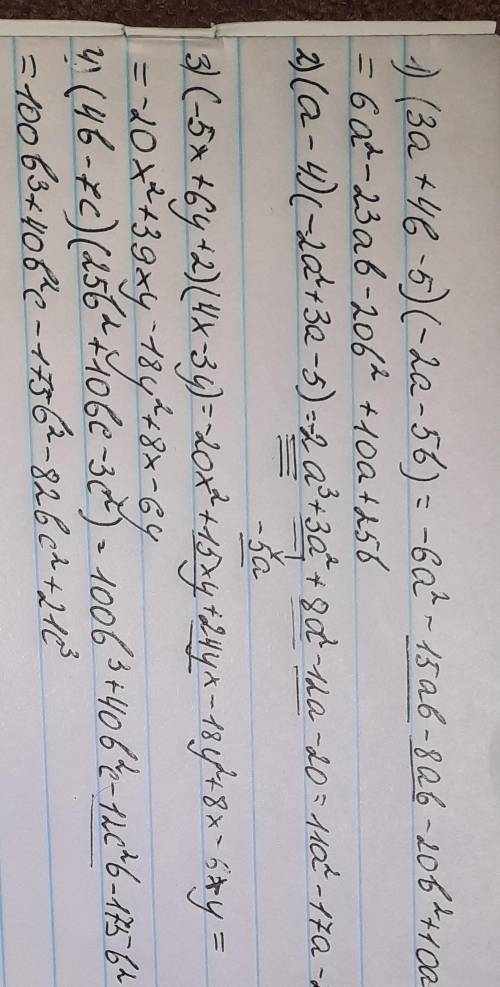 1) (3a + 4b - 5)(-2a - 5b) = -6a² - 15ab - 8ab - 20b² + 10a
= 6a² - 23ab - 20b² + 10a + 25b
2) (a - 4)(-2a² + 3a - 5) = -2a³ + 3a² + 8a² - 12a - 20 = 11a² - 17a -
-5a
3) (-5x + 6y + 2)(4x - 3y) = -20x² + 15xy + 24yx - 18y² + 8x - 6xy =
= -20x² + 39xy - 18y² + 8x - 6y
4) (4b - 7c)(25b² + 10bc - 3c²) = 100b³ + 40b²c - 12c²b - 175b²
= 100b³ + 40b²c - 175b² - 82bc² + 21c³